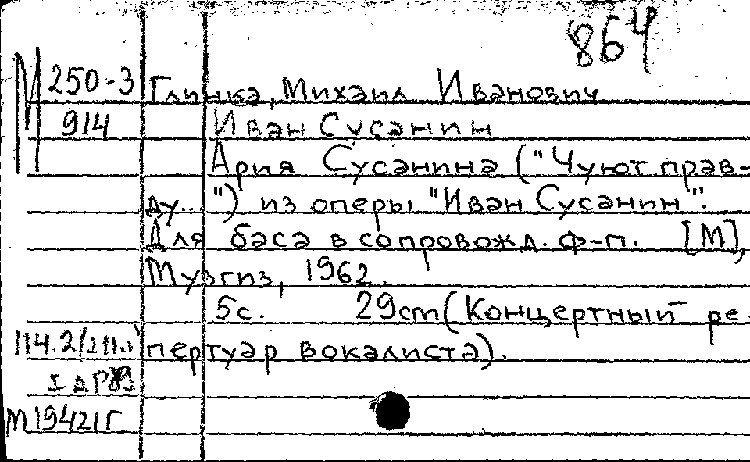 864
М 250-3 Глинка, Михаил Иванович
914 Иван Сусанин
Ария Сусанина ("Чуют прав-
ду..") из оперы "Иван Сусанин".
Для баса в сопровожд. ф-п. [М],
Музгиз, 1962.
5с. 29cm (Концертный ре-
114.2/ пертуар вокалиста).
М19421Г